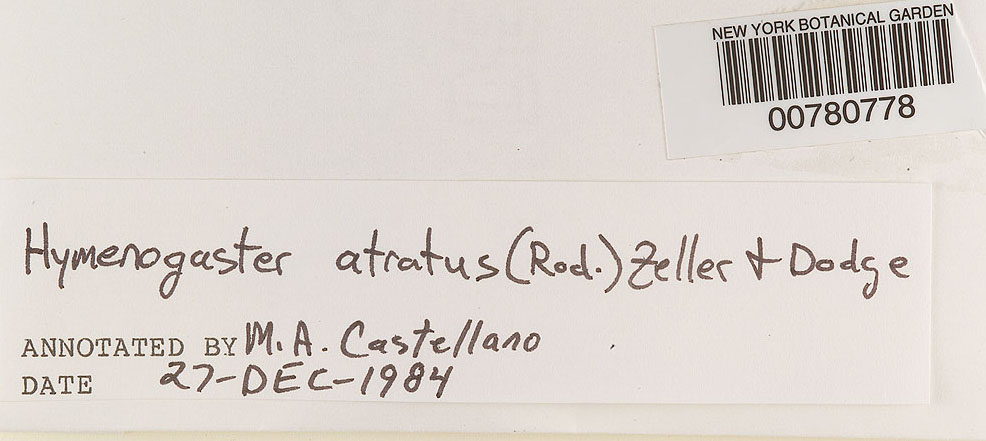 NEW YORK BOTANICAL GARDEN
00780778
Hymenogaster atratus (Rod.) Zeller & Dodge
ANNOTATED BY M. A. Castellano
DATE 27-DEC-1984